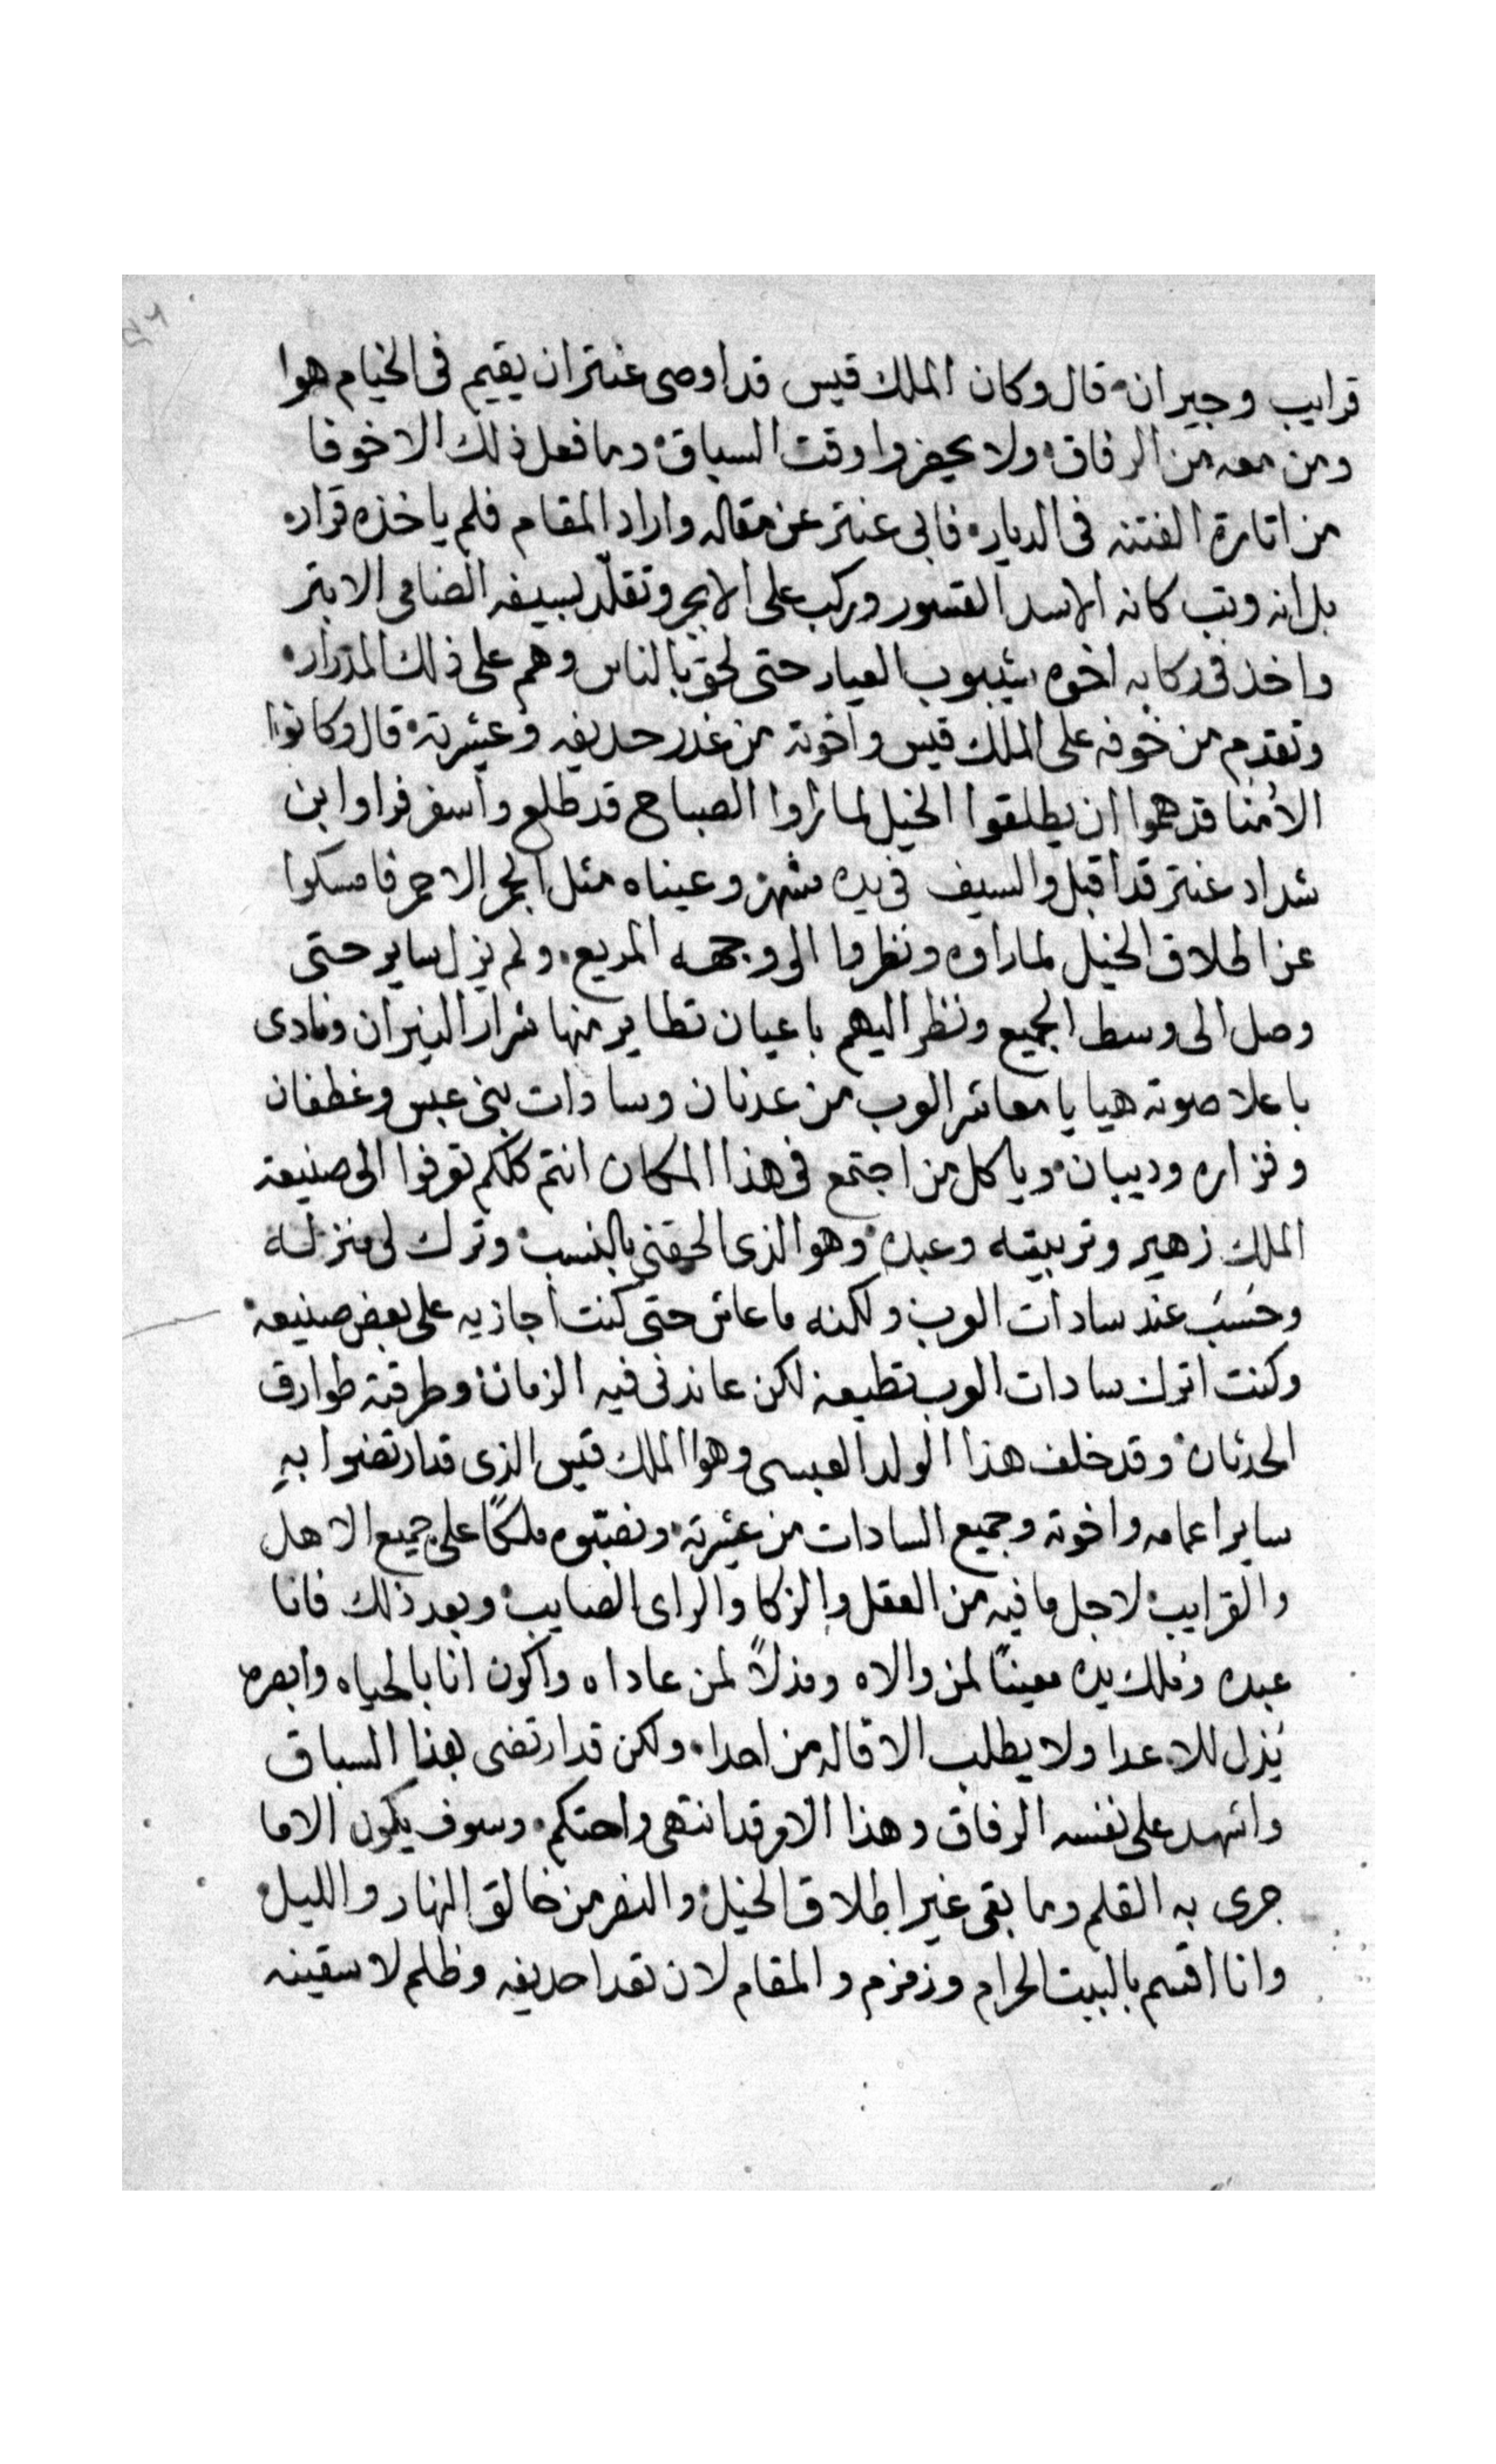 قرايب وجيران قال وكان الملك قيس قد اوصى عنتر ان يقيم فى الخيام هوا
ومن معه من الرفاق ولا يحضروا وقت السباق وما فعل ذلك الا خوفا
من اتارة الفتنه فى الديار فابى عنتر عن مقاله واراد المقام فلم ياخذه قرار
بل انه وتب كانه الاسد القسور وركب على الابجر وتقلّد بسيفه الضامى الابتر
واخذ فى ركابه اخوه شيبوب العيار حتى لحق بالناس وهم على ذلك المدرار
وتقدم من خوفه على الملك قيس واخوته من غدر حديفه وعشيرته قال وكانوا
الاُمنا قد هموا ان يطلقوا الخيل لما راوا الصباح قد طلع واسفر فراوا ابن
شداد عنتر قد اقبل والسيف فى يده مشهر وعيناه مثل الجمر الاحمر فامسكوا
عن اطلاق الخيل لما راوه ونظروا الى وجهه المريع ولم يزل ساير حتى
وصل الى وسط الجميع ونظر اليهم باعيان تطاير منها شرار النيران ونادى
باعلا صوته هيا يا معاشر العرب من عدنان وسادات بنى عبس وغطفان
وفزاره وديبان ويا كل من اجتمع فى هذا المكان انتم كلكم تعرفوا الى صنيعة
الملك زهير وتربيته وعبده وهو الذى الحقنى بالنسب وترك لى منزله
وحَسَبَ عند سادات العرب ولكنه ما عاش حتى كنت اجازيه على بعض صنيعه
وكنت اترك سادات العرب تطيعه لكن عاندنى فيه الزمان وطرقته طوارق
الحدثان وقد خلف هذا الولد العبسى وهو الملك قيس الذى قد ارتضوا بهِ
ساير اعمامه واخوته وجميع السادات من عشيرته ونصبّوه ملكًا على جميع الاهل
والقرايب لاجل ما فيه من العقل والزكا والراى الصايب وبعد ذلك فانا
عبده ومُلك يده معينًا لمن والاه ومذلاً لمن عاداه واكون انا بالحياه وابصره
يُذل للاعدا ولا يطلب الاقاله من احدا ولكن قد ارتضى بهذا السباق
واشهد على نفسه الرفاق وهذا الامر قد انتهى واحتكم وسوف يكون الا ما
جرى به القلم وما بقى غير اطلاق الخيل والنصر من خالق النهار والليل
وانا اقسم بالبيت الحرام وزمزم والمقام لان تعدا حديفه وظلم لاسقينه